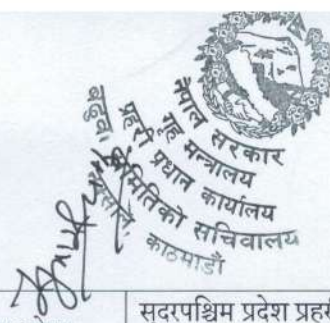 नेपाल सरकार
गृह मन्त्रालय
प्रहरी प्रधान कार्यालय
बढुवा समितिको सचिवालय
काठमाडौं
सुदूरपश्चिम प्रदेश प्रहरी